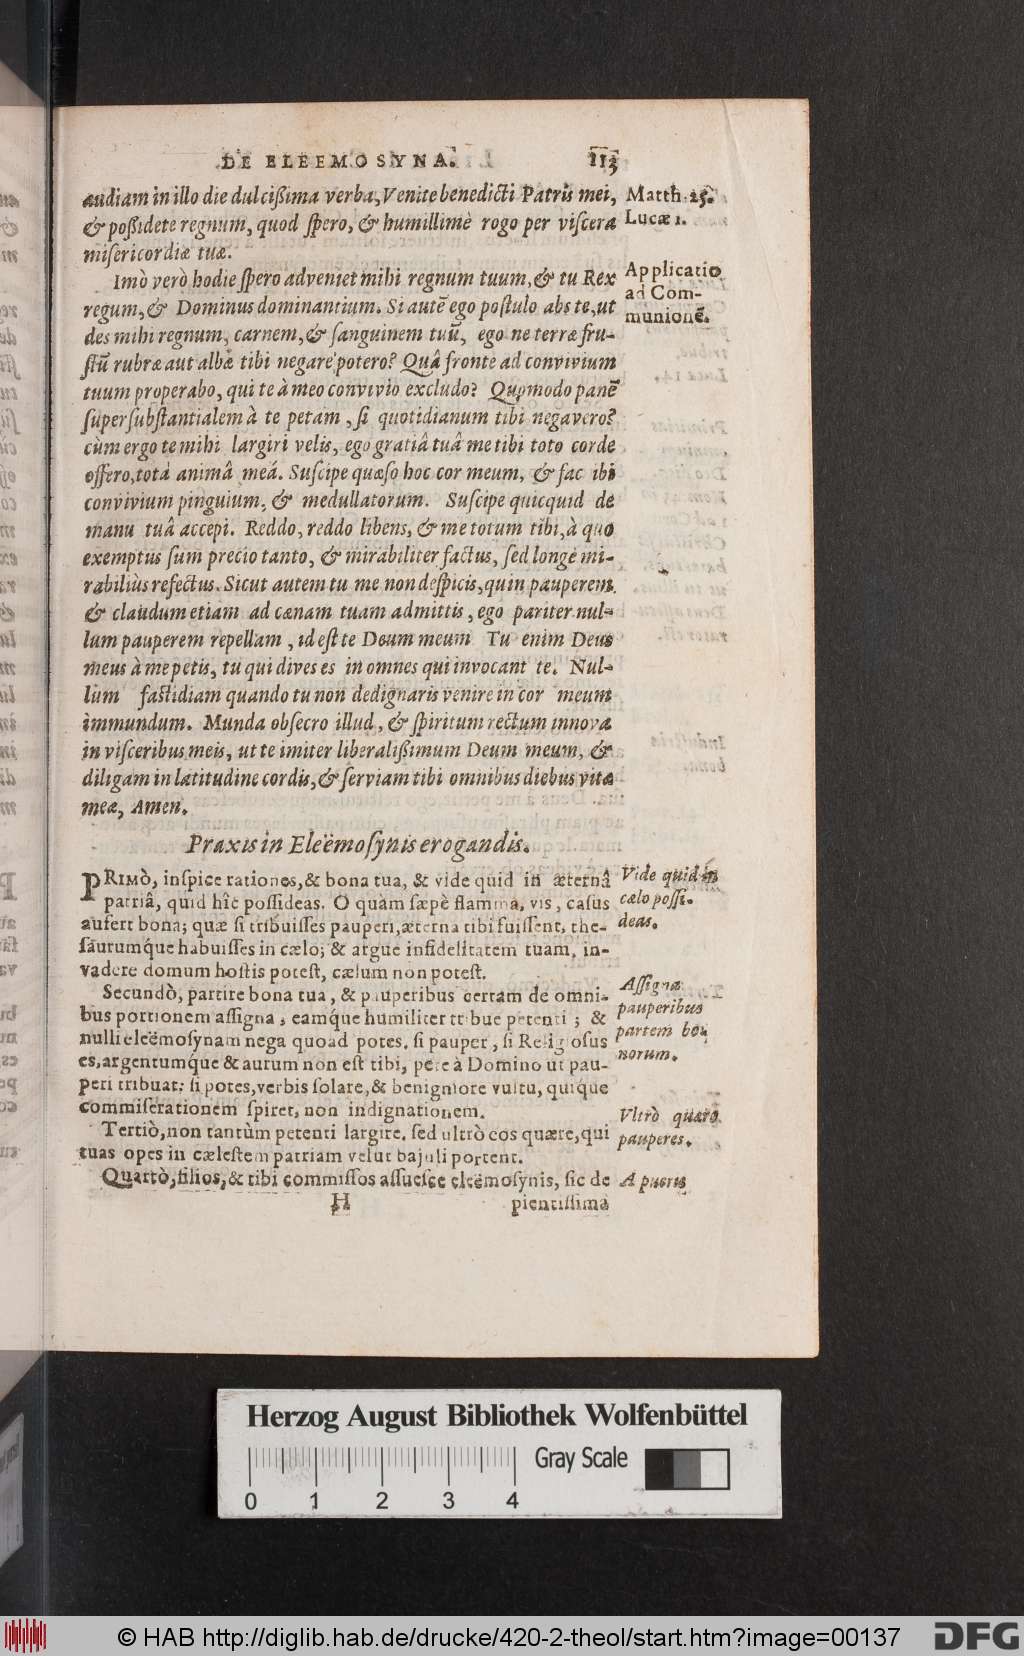 DE ELEEMOSYNA. 113
audiam in illo die dulcißima verba, Venite benedicti Patris mei,
& poßidete regnum, quod spero, & humillimè rogo per viscera
misericordiæ tuæ.
Matth. 25.
Lucæ 1.
Imò verò hodie spero adveniet mihi regnum tuum, & tu Rex
regum, & Dominus dominantium. Si autē ego postulo abs te, ut
des mihi regnum, carnem, & sanguinem tuū, ego ne terræ fru-
stū rubræ aut albæ tibi negare potero? Quâ fronte ad convivium
tuum properabo, qui te à meo convivio excludo? Quomodo panē
supersubstantialem à te petam, si quotidianum tibi negavero?
cùm ergo te mihi largiri velis, ego gratiâ tuâ me tibi toto corde
offero, totâ animâ meâ. Suscipe quæso hoc cor meum, & fac ibi
convivium pinguium, & medullatorum. Suscipe quicquid de
manu tuâ accepi. Reddo, reddo libens, & me totum tibi, à quo
exemptus sum precio tanto, & mirabiliter factus, sed longè mi-
rabiliùs refectus. Sicut autem tu me non despicis, quin pauperem
& claudum etiam ad cænam tuam admittis, ego pariter nul-
lum pauperem repellam, id est te Deum meum Tu enim Deus
meus à me petis, tu qui dives es in omnes qui invocant te. Nul-
lum fastidiam quando tu non dedignaris venire in cor meum
immundum. Munda obsecro illud, & spiritum rectum innova
in visceribus meis, ut te imiter liberalißimum Deum meum, &
diligam in latitudine cordis, & serviam tibi omnibus diebus vitæ
meæ, Amen.
Applicatio
ad Com-
munionē.
Praxis in Eleëmosynis erogandis.
PRIMÒ, inspice rationes, & bona tua, & vide quid in æternâ
patriâ, quid hîc possideas. O quàm sæpè flamma, vis, casus
aufert bona; quæ si tribuisses pauperi, æterna tibi fuissent, the-
saurumq́ue habuisses in cælo; & argue infidelitatem tuam, in-
vadere domum hostis potest, cælum non potest.
Vide quid in
cælo possi-
deas.
Secundò, partire bona tua, & pauperibus certam de omni-
bus portionem assigna, eamq́ue humiliter tribue petenti; &
nulli eleëmosynam nega quoad potes. si pauper, si Religiosus
es, argentumq́ue & aurum non est tibi, pete à Domino ut pau-
peri tribuat: si potes, verbis solare, & benigniore vultu, quique
commiserationem spiret, non indignationem.
Assigna
pauperibus
partem bo-
norum.
Tertiò, non tantùm petenti largire, sed ultrò eos quære, qui
tuas opes in cælestem patriam velut bajuli portent.
Vltrò quære
pauperes.
Quartò, filios, & tibi commissos assuesce eleëmosynis, sic de
A pueris
H pientissima
Herzog August Bibliothek Wolfenbüttel
Gray Scale
0 1 2 3 4
© HAB http://diglib.hab.de/drucke/420-2-theol/start.htm?image=00137
DFG